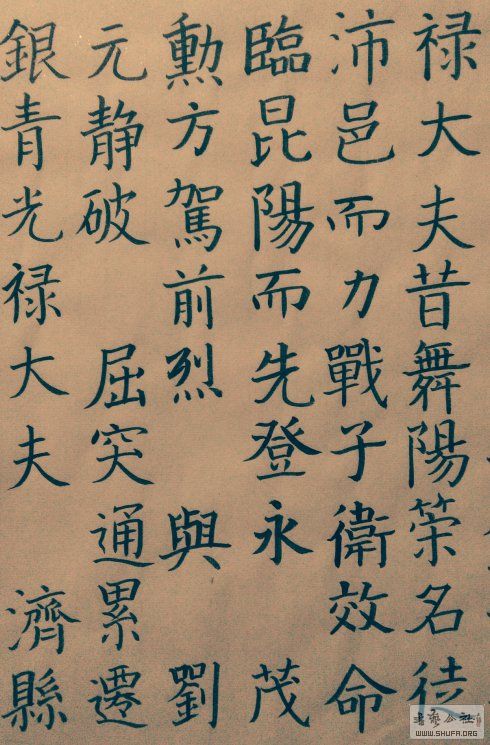 禄大夫昔舞陽策名
沛邑而力戰子衛效命
臨昆陽而先登永茂
勳方駕前烈 與劉
元静破 屈突通累遷
銀青光禄大夫 濟縣
書藝公社
WWW.SHUFA.ORG